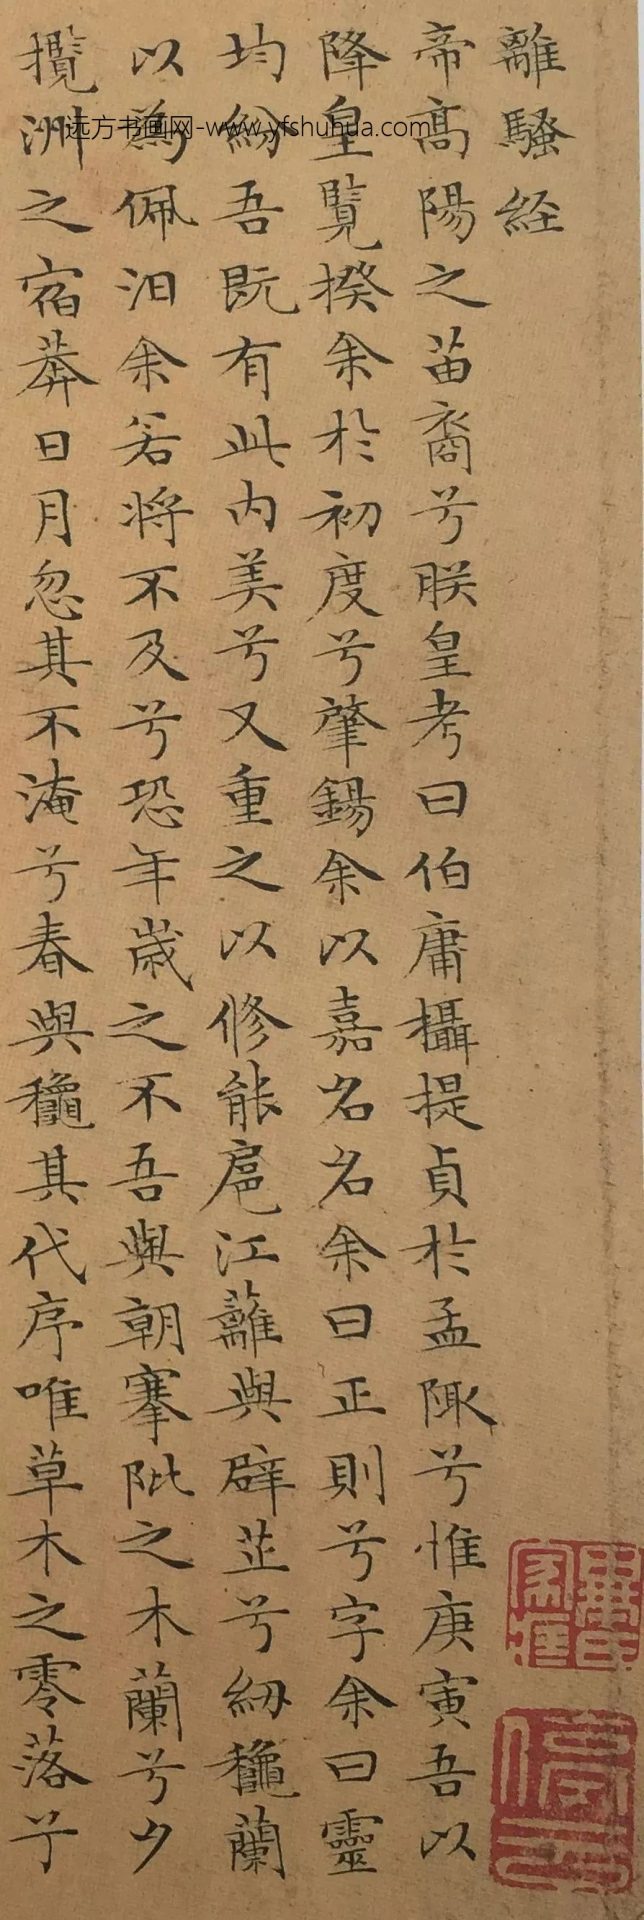 離騷経
帝髙陽之苗裔兮朕皇考曰伯庸攝提貞於孟陬兮惟庚寅吾以
降皇覽揆余於初度兮肇錫余以嘉名名余曰正則兮字余曰靈
均紛吾既有此内美兮又重之以修能扈江蘺與辟芷兮紉龝蘭
以為佩汨余若將不及兮恐年歲之不吾與朝搴阰之木蘭兮夕
攬洲之宿莽日月忽其不淹兮春與龝其代序唯草木之零落兮
远方书画网-www.yfshuhua.com